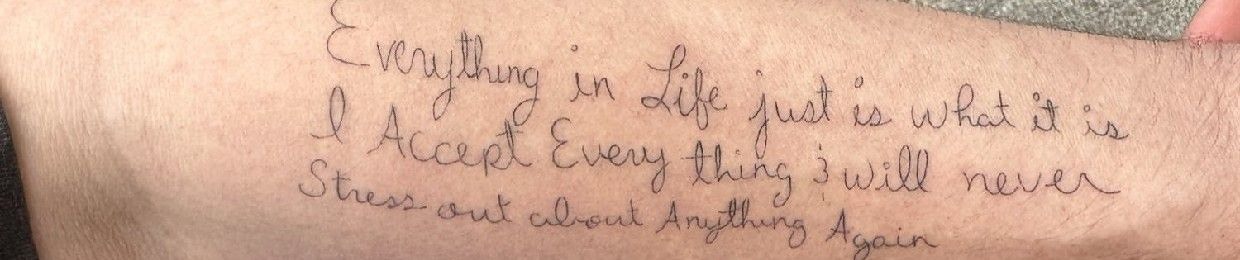 Everything in Life just is what it is
I Accept Every thing & will never
Stress out about Anything Again